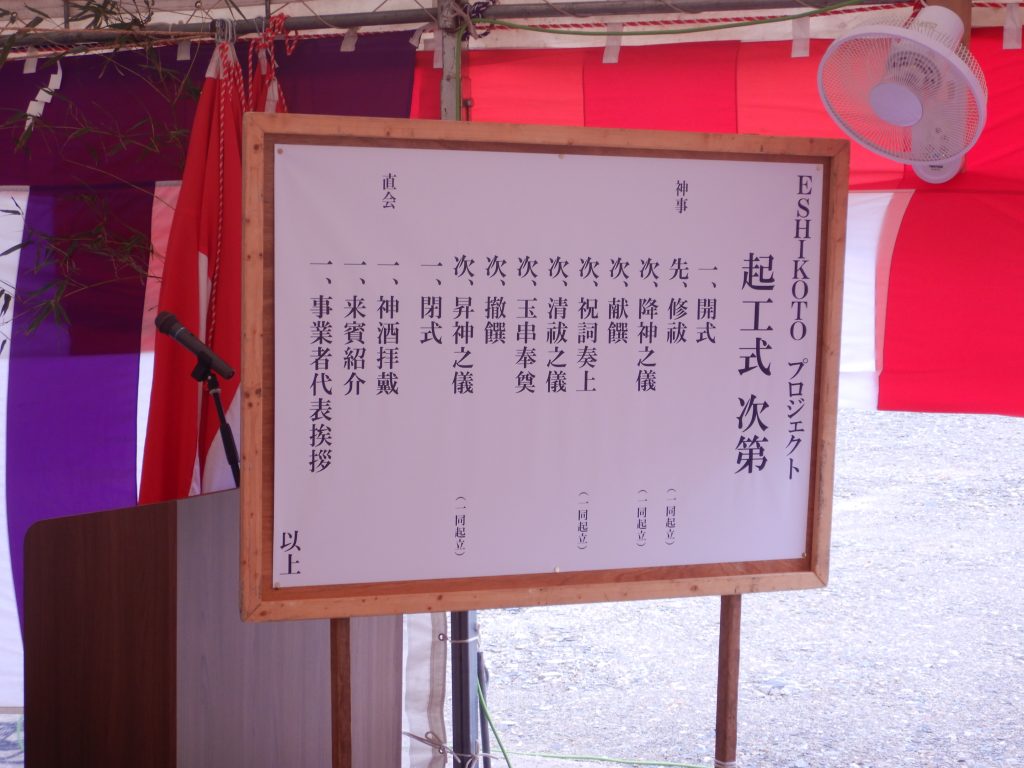 ESHIKOTO プロジェクト
起工式 次第
一、開式
神事
先、修祓 (一同起立)
次、降神之儀 (一同起立)
次、献饌
次、祝詞奏上 (一同起立)
次、清祓之儀
次、玉串奉奠
次、撤饌
次、昇神之儀 (一同起立)
一、閉式
直会
一、神酒拝戴
一、来賓紹介
一、事業者代表挨拶
以上